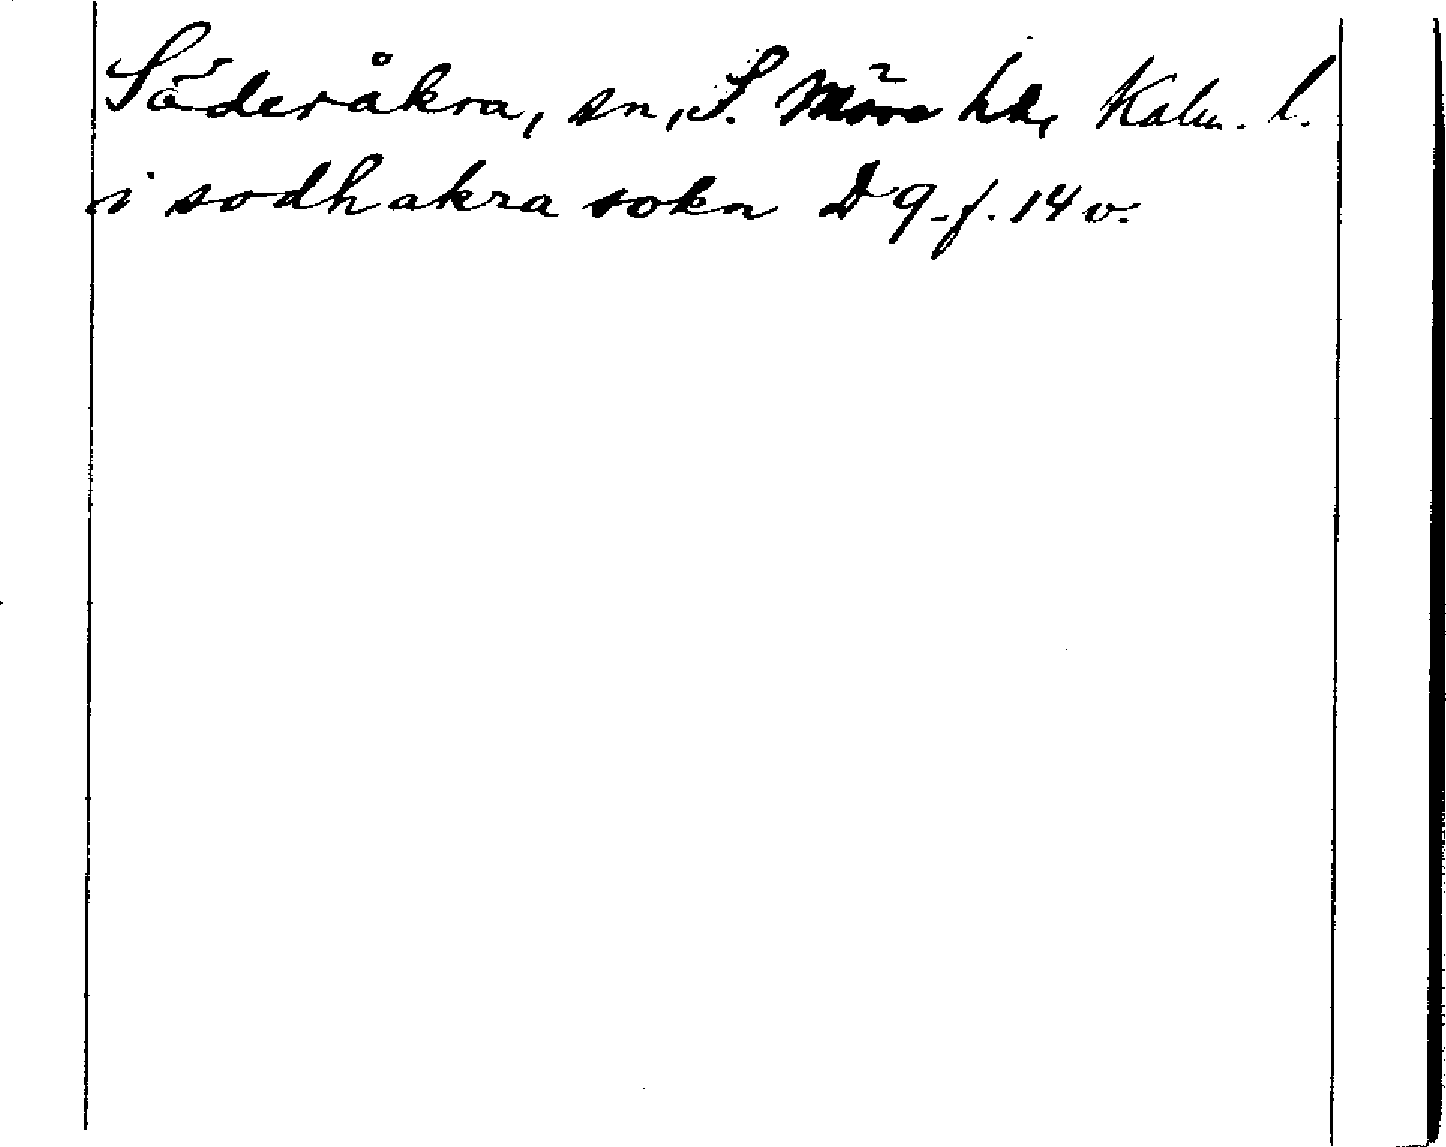 Söderåkra, sn, S. Möre hd, Kalm. l.
i sodhakra sokn D 9 f. 14 v.